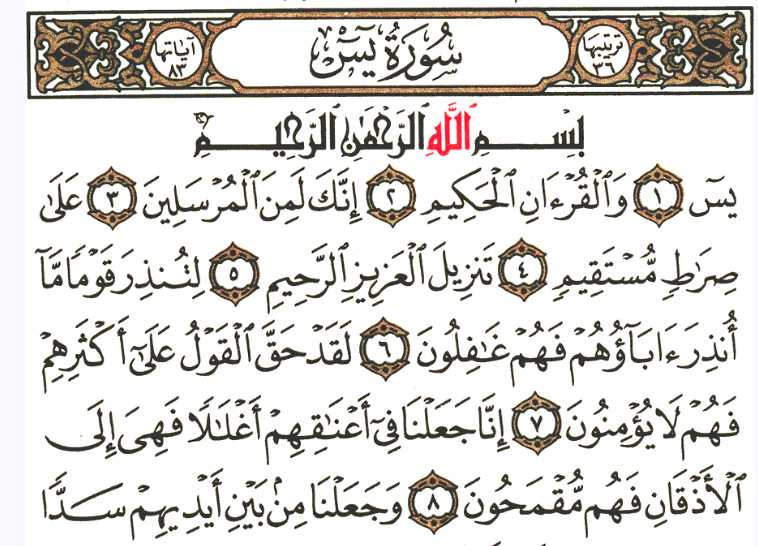 ترتيبها ٣٦ سُورَةُ يسٓ آياتها ٨٣
بِسۡمِ ٱللَّهِ ٱلرَّحۡمَٰنِ ٱلرَّحِيمِ
يسٓ ١ وَٱلۡقُرۡءَانِ ٱلۡحَكِيمِ ٢ إِنَّكَ لَمِنَ ٱلۡمُرۡسَلِينَ ٣ عَلَىٰ
صِرَٰطٖ مُّسۡتَقِيمٖ ٤ تَنزِيلَ ٱلۡعَزِيزِ ٱلرَّحِيمِ ٥ لِتُنذِرَ قَوۡمٗا مَّآ
أُنذِرَ ءَابَآؤُهُمۡ فَهُمۡ غَٰفِلُونَ ٦ لَقَدۡ حَقَّ ٱلۡقَوۡلُ عَلَىٰٓ أَكۡثَرِهِمۡ
فَهُمۡ لَا يُؤۡمِنُونَ ٧ إِنَّا جَعَلۡنَا فِيٓ أَعۡنَٰقِهِمۡ أَغۡلَٰلٗا فَهِيَ إِلَى
ٱلۡأَذۡقَانِ فَهُم مُّقۡمَحُونَ ٨ وَجَعَلۡنَا مِنۢ بَيۡنِ أَيۡدِيهِمۡ سَدّٗا